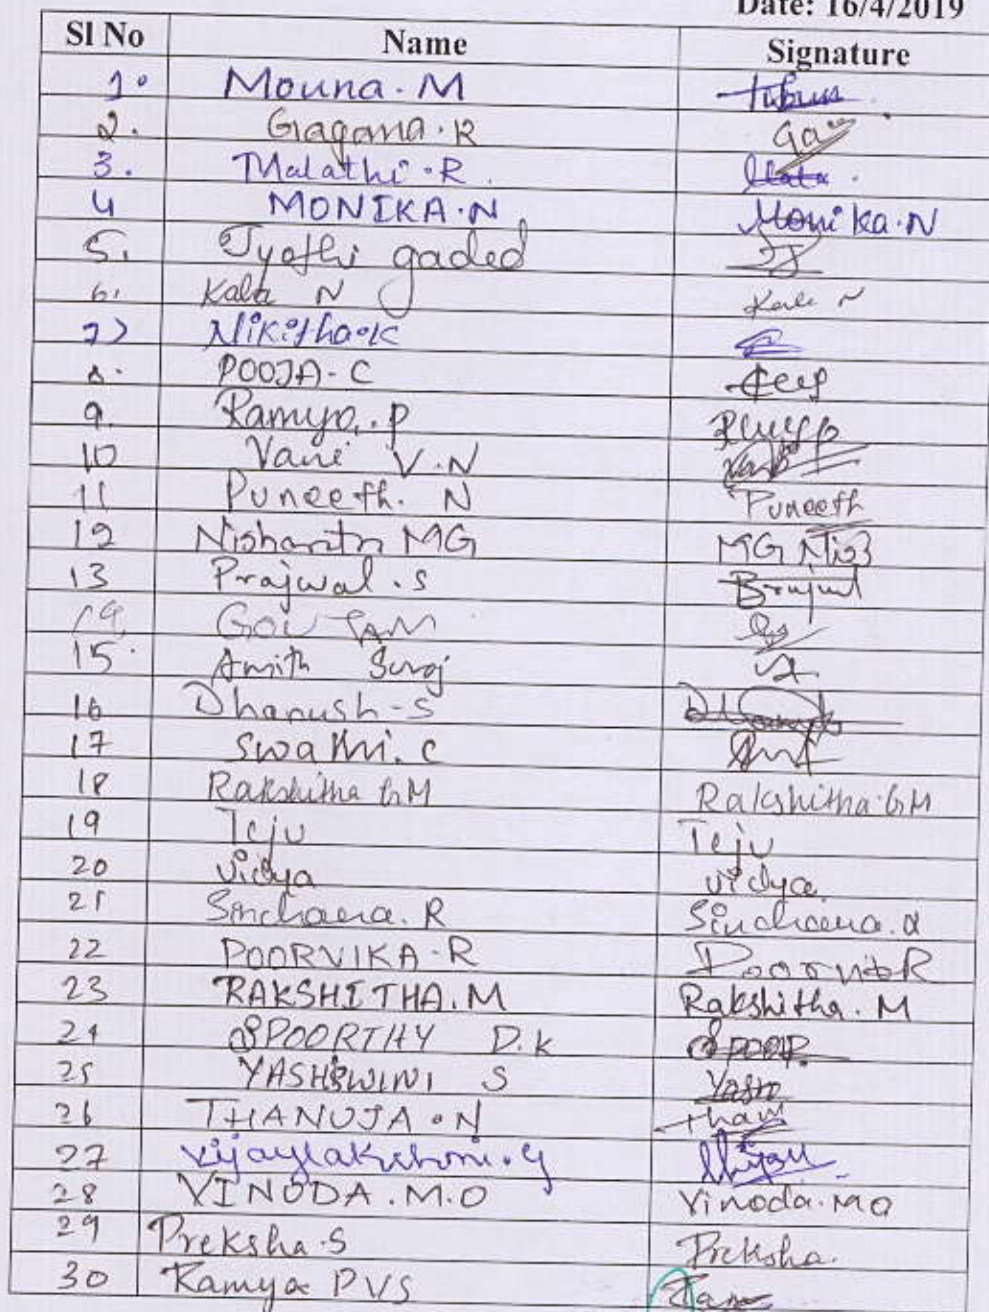 Date: 16/4/2019
Sl No Name Signature
1. Mouna. M
2. Gagana. R Ga
3. Malathi. R Mala
4 MONIKA. N Monika. N
5. Jyothi gaded
6. Kala N Kala N
7) Nikitha. K
8. POOJA - C
9. Ramya. P
10 Vani V. N
11 Puneeth. N Puneeth
12 Nishanth MG MG
13 Prajwal. S
14 GOUTAM
15. Amith Suraj
16 Dhanush - S
17 Swathi. C
18 Rakshitha G M Rakshitha. G M
19 Teju Teju
20 Vidya Vidya
21 Sinchana. R Sinchana. R
22 POORVIKA. R
23 RAKSHITHA. M Rakshitha. M
24 SPOORTHY D. K Spoor
25 YASHSWINI S
26 THANUJA. N
27 Vijaylakshmi. G
28 VINODA. M. O Vinoda. M O
29 Preksha. S Preksha.
30 Ramya P V S